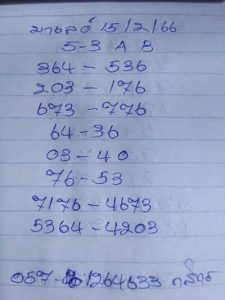 มาเลย์ 15/2/66
5-3 A B
364-536
203-176
673-776
64-36
03-40
76-53
7176-4673
5364-4203
057-1264633